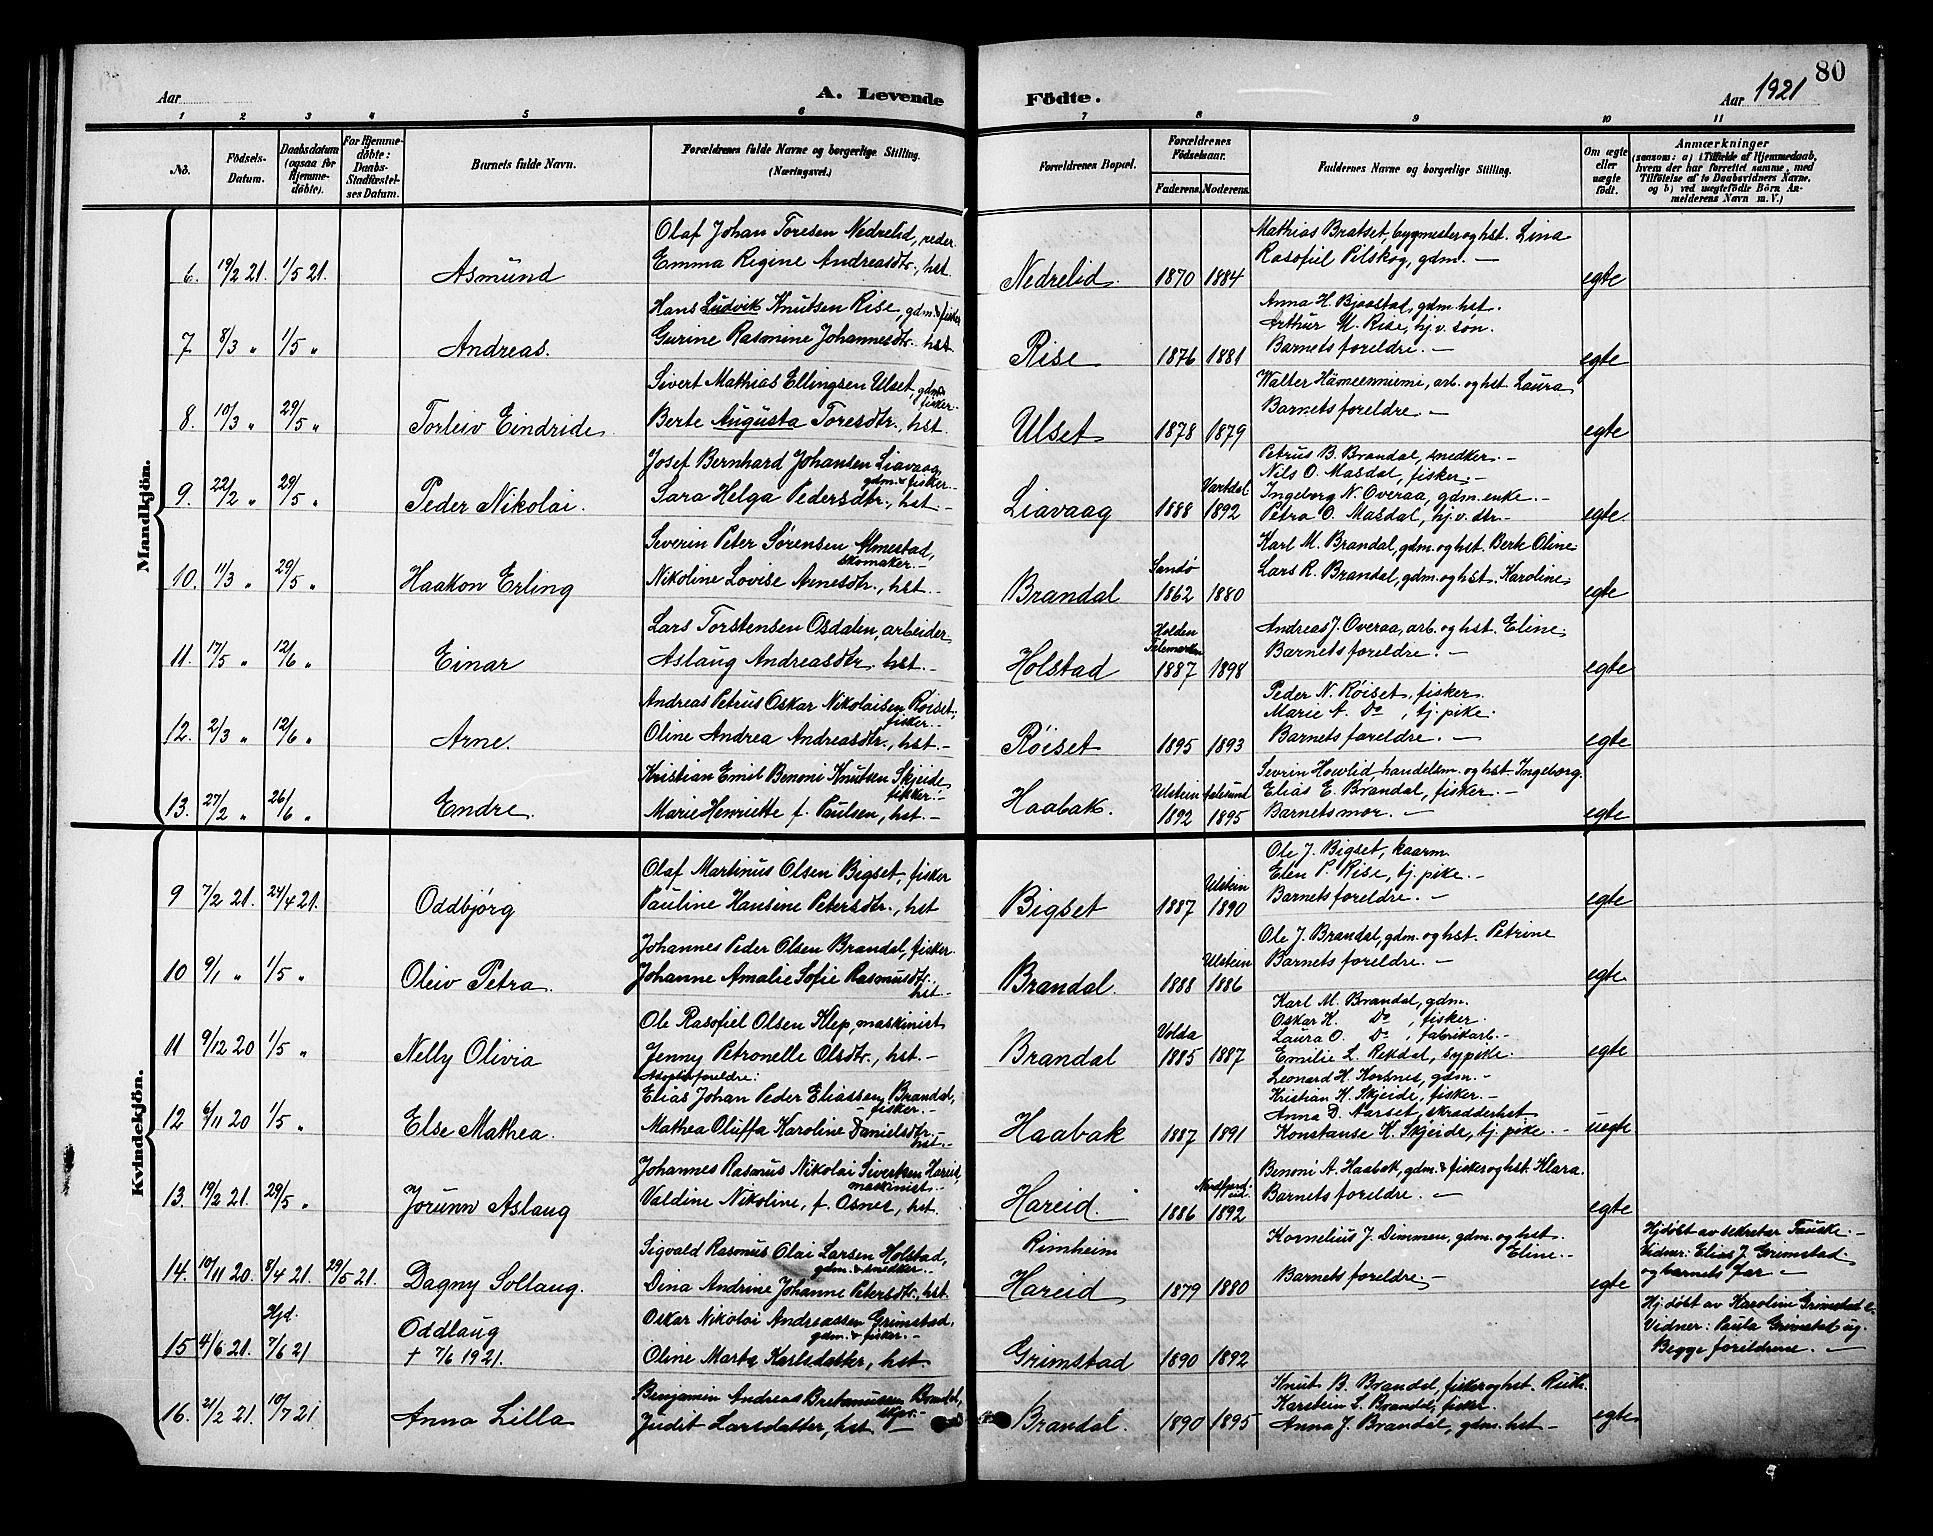 80
Aar A. Levende Födte. Aar 1921
1 2 3 4 5 6 7 8 9 10 11
No. Födsels-Datum. Daabsdatum (ogsaa for Hjemme-döbte). For Hjemme-döbte: Daabs-Stadfæstel-ses Datum. Barnets fulde Navn. Forældrenes fulde Navne og borgerlige Stilling. (Næringsvei.) Forældrenes Bopæl. Forældrenes Födselsaar. Faderens. Moderens. Faddernes Navne og borgerlige Stilling. Om ægte eller uægte födt. Anmærkninger (saasom: a) i Tilfælde af Hjemmedaab, hvem der har forrettet samme, med Tilföielse af to Daabsvidners Navne, og b) ved uægtefödte Börn An-melderens Navn m. V.)
Mandkjön.
Olaf Johan Toresen Nedrelid, reder. Mathias Bratset, bygmester og hst. Lina
6. 19/2 21. 1/5 21. Asmund Emma Regine Andreasdtr., hst. Nedrelid. 1870 1884 Rasofiel Pilskog, gdm. — egte
Hans Ludvik Knutsen Rise, gdm. & fisker Anna H. Bjaastad, gdm. hst.
Arthur M. Rise, hj. v. søn.
7 8/3 " 1/5 " Andreas. Gurine Rasmine Johannesdtr. hst. Rise 1876 1881 Barnets foreldre. — egte
Sivert Mathias Ellingsen Ulset, gdm. & fisker. Walter Hämeenniemi, arb. og hst. Laura
8. 10/3 " 29/5 " Torleiv Eindride. Berte Augusta Toresdtr., hst. Ulset 1878 1879 Barnets foreldre. — egte
Josef Bernhard Johansen Liavaag gdm. & fisker. Petrus B. Brandal, snedker. —
Nils O. Masdal, fisker. —
Vartdal Ingeborg N. Overaa, gdm. enke. —
9. 22/2 " 29/5 " Peder Nikolai. Sara Helga Pedersdtr., hst. Liavaag 1888 1892 Petra O. Masdal, hj. v. dtr. — egte
Severin Peter Sørensen Almestad, skomaker. Karl M. Brandal, gdm. og hst. Berte Oline
10. 11/3 " 29/5 " Haakon Erling Nikoline Lovise Arnesdtr., hst. Brandal Sandø 1862 1880 Lars R. Brandal, gdm. og hst. Karoline egte
Lars Torstensen Osdalen, arbeider Andreas J. Overaa, arb. og hst. Eline
11. 17/5 " 12/6 " Einar Aslaug Andreasdtr. hst. Holstad Holden Telemarken 1887 1898 Barnets foreldre. — egte
Andreas Petrus Oskar Nikolaisen Røiset, fisker. Peder N. Røiset, fisker.
Marie A. Do , tj. pike.
12. 2/3 " 12/6 " Arne. Oline Andrea Andreasdtr., hst. Røiset 1895 1893 Barnets foreldre. — egte
Kristian Emil Benoni Knutsen Skjeide fisker. Sevrin Hovlid handelsm. og hst. Ingeborg.
Ulstein Aalesund Elias E. Brandal, fisker. —
13. 27/2 " 26/6 " Endre. Marie Henriette f. Paulsen, hst. Haabak. 1892 1895 Barnets mor. — egte
Kvindekjön.
Olaf Martinus Olsen Bigset, fisker Ole J. Bigset, kaarm.
Elen P. Rise, tj. pike. —
9 7/2 21. 24/4 21. Oddbjørg Pauline Hansine Petersdtr., hst Bigset 1887 Ulstein 1890 Barnets foreldre. — egte
Johannes Peder Olsen Brandal, fisker. Ole J. Brandal, gdm. og hst. Petrine
10 9/1 " 1/5 " Oleiv Petra. Johanne Amalie Sofie Rasmusdtr. hst. Brandal. 1888 Ulstein 1886 Barnets foreldre. — egte
Karl M. Brandal, gdm.
Ole Rasofiel Olsen Klep, maskinist Oskar K. Do , fisker.
Laura O. Do , fabrikarb.
11 9/12 20 1/5 " Nelly Olivia Jenny Petronelle Olsdtr., hst. Brandal Volda 1885 1887 Emilie L. Rekdal, sypike. egte
Adoptivforeldre: Leonard H. Korsnes, gdm. —
Elias Johan Peder Eliassen Brandal, fisker. Kristian K. Skjeide, fisker. —
Anna D. Aarset, skrædderhst
12 6/11 20 1/5 " Else Mathea. Mathea Oluffa Karoline Danielsdtr. hst. Haabak 1887 1891 Konstanse K. Skjeide, tj. pike. — uegte
Johannes Rasmus Nikolai Sivertsen Hareid, maskinist. Benoni A. Haabak, gdm. & fisker og hst. Klara.
13. 19/2 21. 29/5 " Jorunn Aslaug Valdine Nikoline, f. Osnes, hst. Hareid. 1886 Nordfjord eid. 1892 Barnets foreldre. — egte
Sigvald Rasmus Olai Larsen Holstad, gdm. & snedker. Rimheim Kornelius J. Dimmen, gdm. og hst. Eline. Hjdøbt av sekretær Fauske.
Vidner: Elias J. Grimstad
14. 10/11 20. 8/4 21. 29/5 21. Dagny Sollaug. Dina Andrine Johanne Petersdtr., hst. Hareid 1879 1880 Barnets foreldre. — egte og barnets far —
Hjd. Oskar Nikolai Andreassen Grimstad, gdm. & fisker. Hj. døbt av Karoline Grimstad
Vidner: Paula Grimstad og
15 4/6 21. 7/6 21 Oddlaug † 7/6 1921. Oline Marta Karlsdatter, hst Grimstad 1890 1892 Begge foreldrene. —
Benjamin Andreas Brandal, Knut B. Brandal, fisker og hst.
Karstein L. Brandal, fisker.
16. 21/2 21. 10/7 21. Anna Lilla Judit Larsdatter, hst Brandal. 1890 1895 Anna J. Brandal, gdm. hst — egte